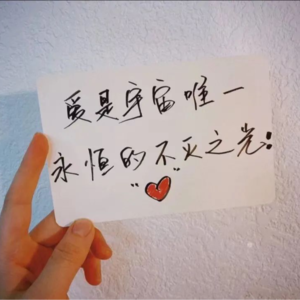 爱是宇宙唯一
永恒的不灭之光!